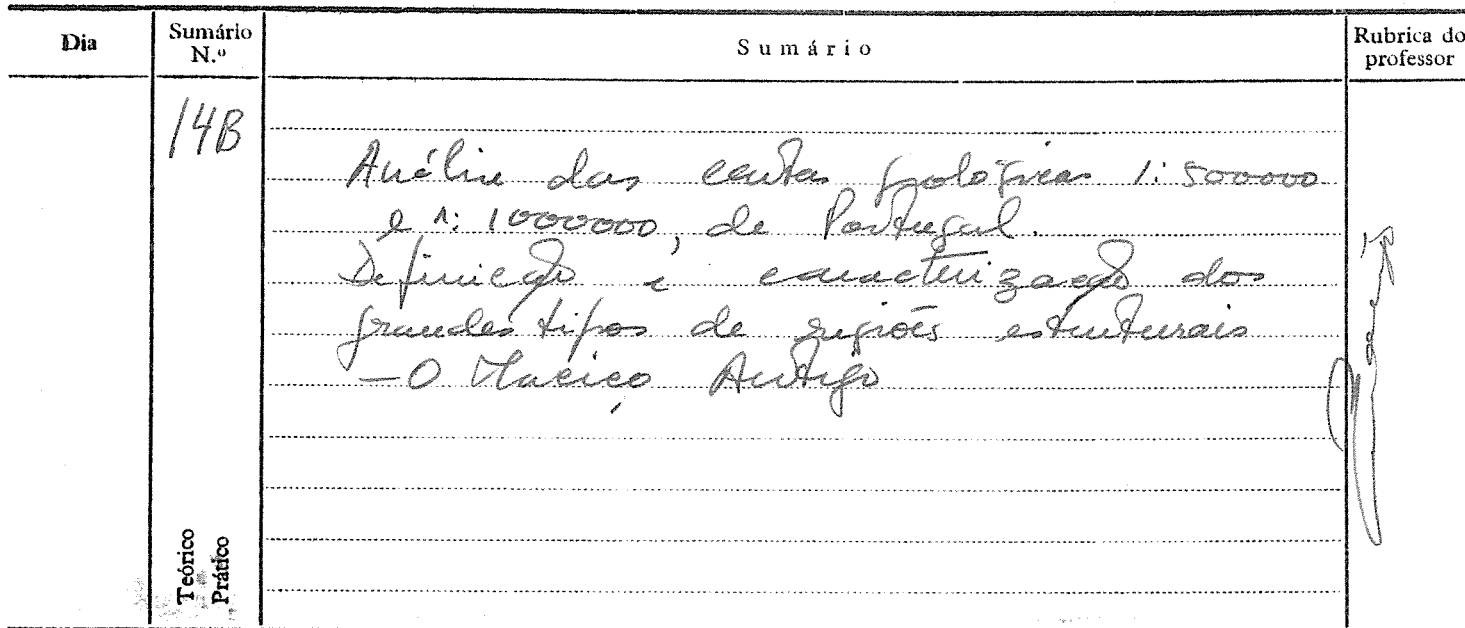 Dia
Sumário N.º
Sumário
Rubrica do professor
14B
Análise das cartas geológicas 1:500000
e 1:1000000, de Portugal.
Definição e caracterização dos
grandes tipos de regiões estruturais
– O Maciço Antigo
Teórico
Prático